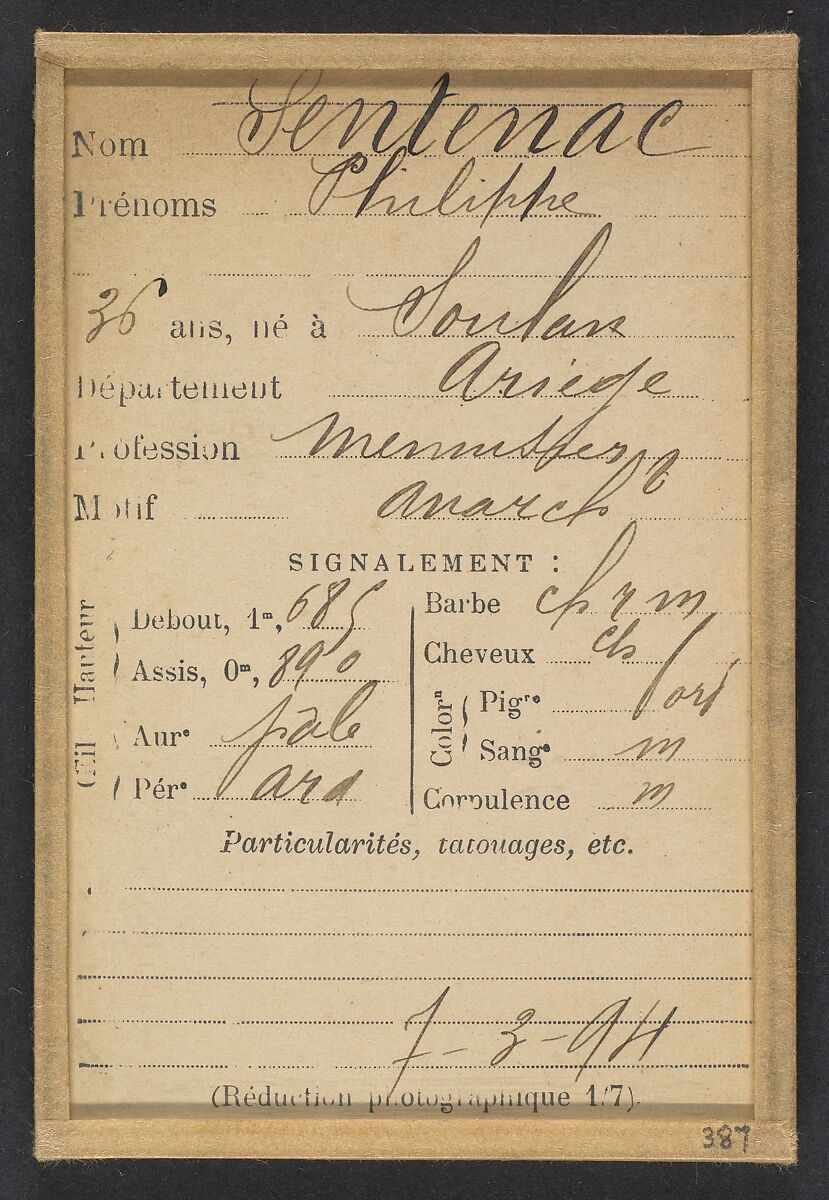 Nom Sentenac
Prénoms Philippe
36 ans, né à Soulan
Département Ariège
Profession Menuisier
Motif Anarch
SIGNALEMENT :
Hauteur
Debout, 1m, 685
Assis, 0m, 890
Œil
Aure pâle
Pére ard
Barbe ch r m
Cheveux ch
Colorn
Pigre
Sange m
Corpulence m
Particularités, tatouages, etc.
7-3-94
(Réduction photographique 1/7).
387